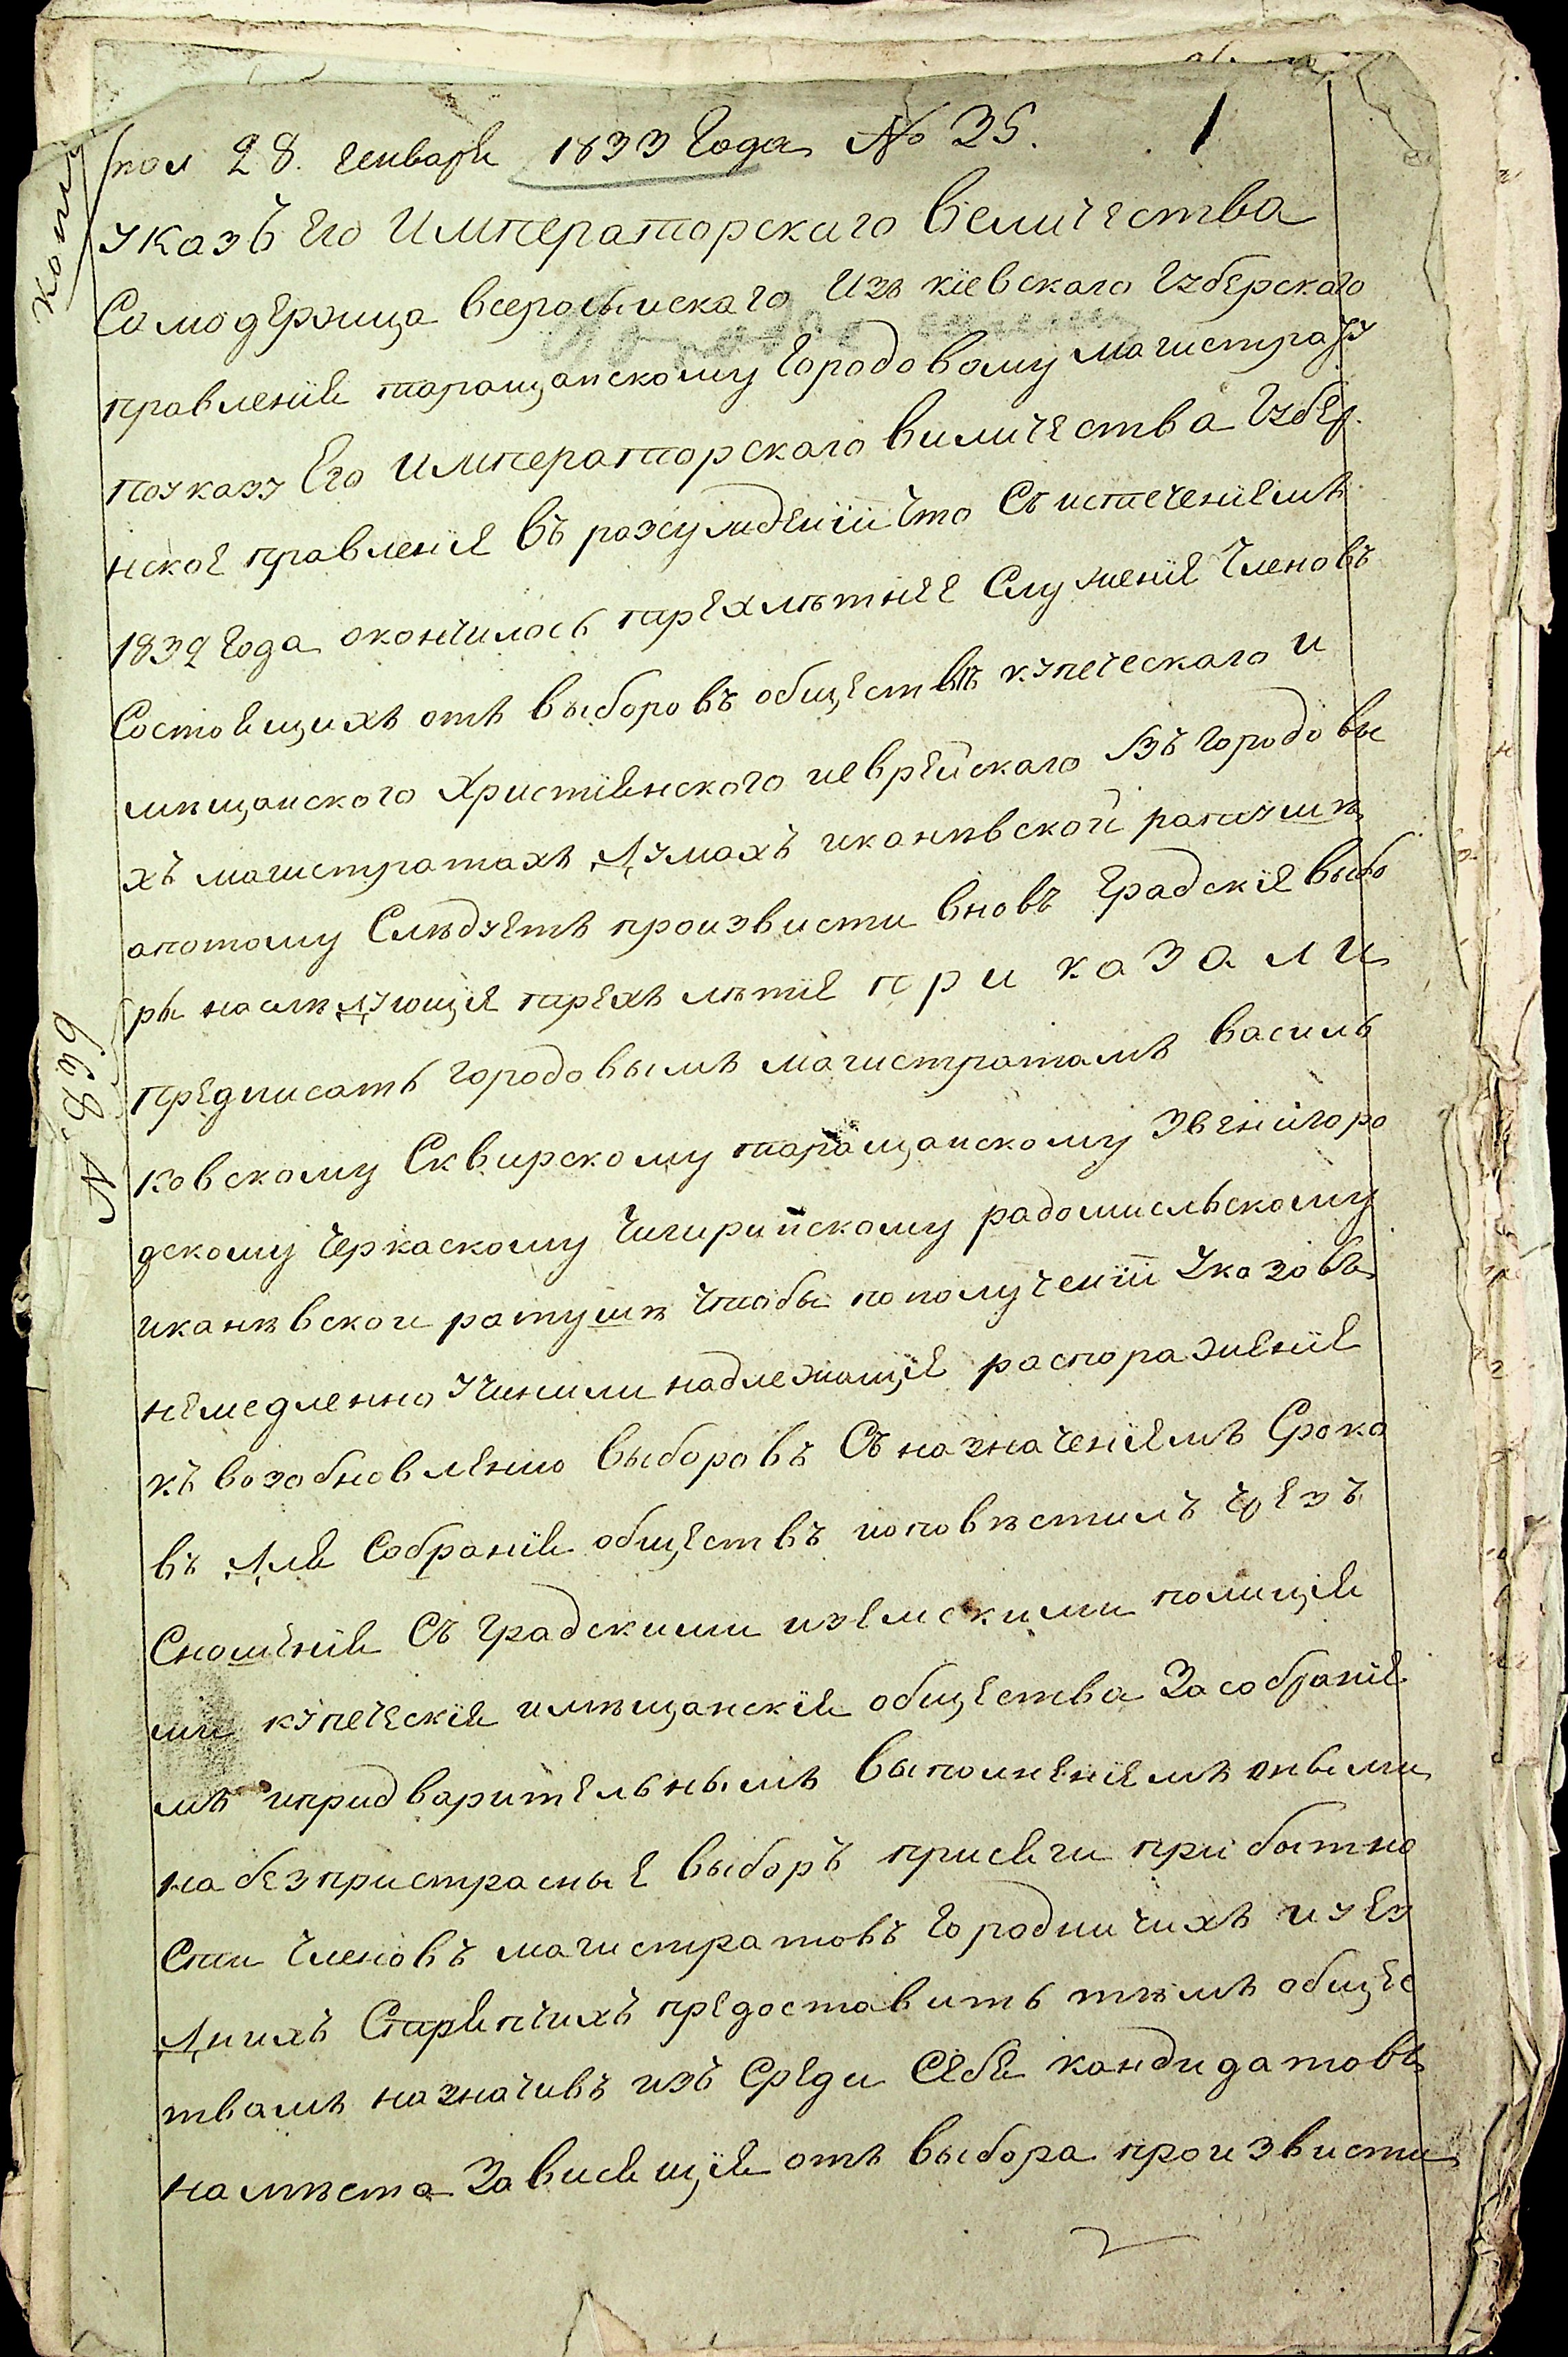 Копия
пол 28. генваря 1833 Года № 35. 1
указъ Его Императорского Величества
Самодержца всеросыискаго Изъ кіевскаго Губерскаго
правленія таращанскому Городовому магистрату
поуказу Его Императорскаго виличества Губер
нское правленіе въ разсужденіи Что Съ истеченіемъ
1832 Года окончилось трехлѣтнее Служеніе Членовъ
Состоящихъ отъ выборовъ обществъ купеческаго и
мѣщанского Христіянского иеврейскаго Въ городовы
хъ магистратахъ Думахъ иканѣвской ратушѣ
апотому Слѣдуетъ произвисти вновь Градскіе выбо
ры наслѣдующіе трехъ лѣтіе при казали
предписать городовымъ магистратамъ василь
ковскому Сквирскому таращанскому Звенигоро
дскому Черкаскому Чигиринскому радомисльскому
иканѣвской ратушѣ Чтобы пополученіи Указовъ
немедленно Учинили надлежащіе распораженіе
къ возобновленію выборовъ Съ назначеніемъ Сроко
въ Для Собранія обществъ иоповѣстилъ Чрезъ
Сношенія Съ Градскими иземскими полиція
ми купеческія имѣщанскія общества Засобрание
мъ ипридварительнымъ выполненіемъ оными
на безпристрасные выборъ присяги при бытно
Сти Членовъ магистратовъ Городничихъ иуез
Днихъ Стряпчихъ предоставить тѣмъ общес
твамъ назначивъ изъ Среди Себя кандидатовъ
намѣста Зависящія отъ выбора произвисти
№ 8699